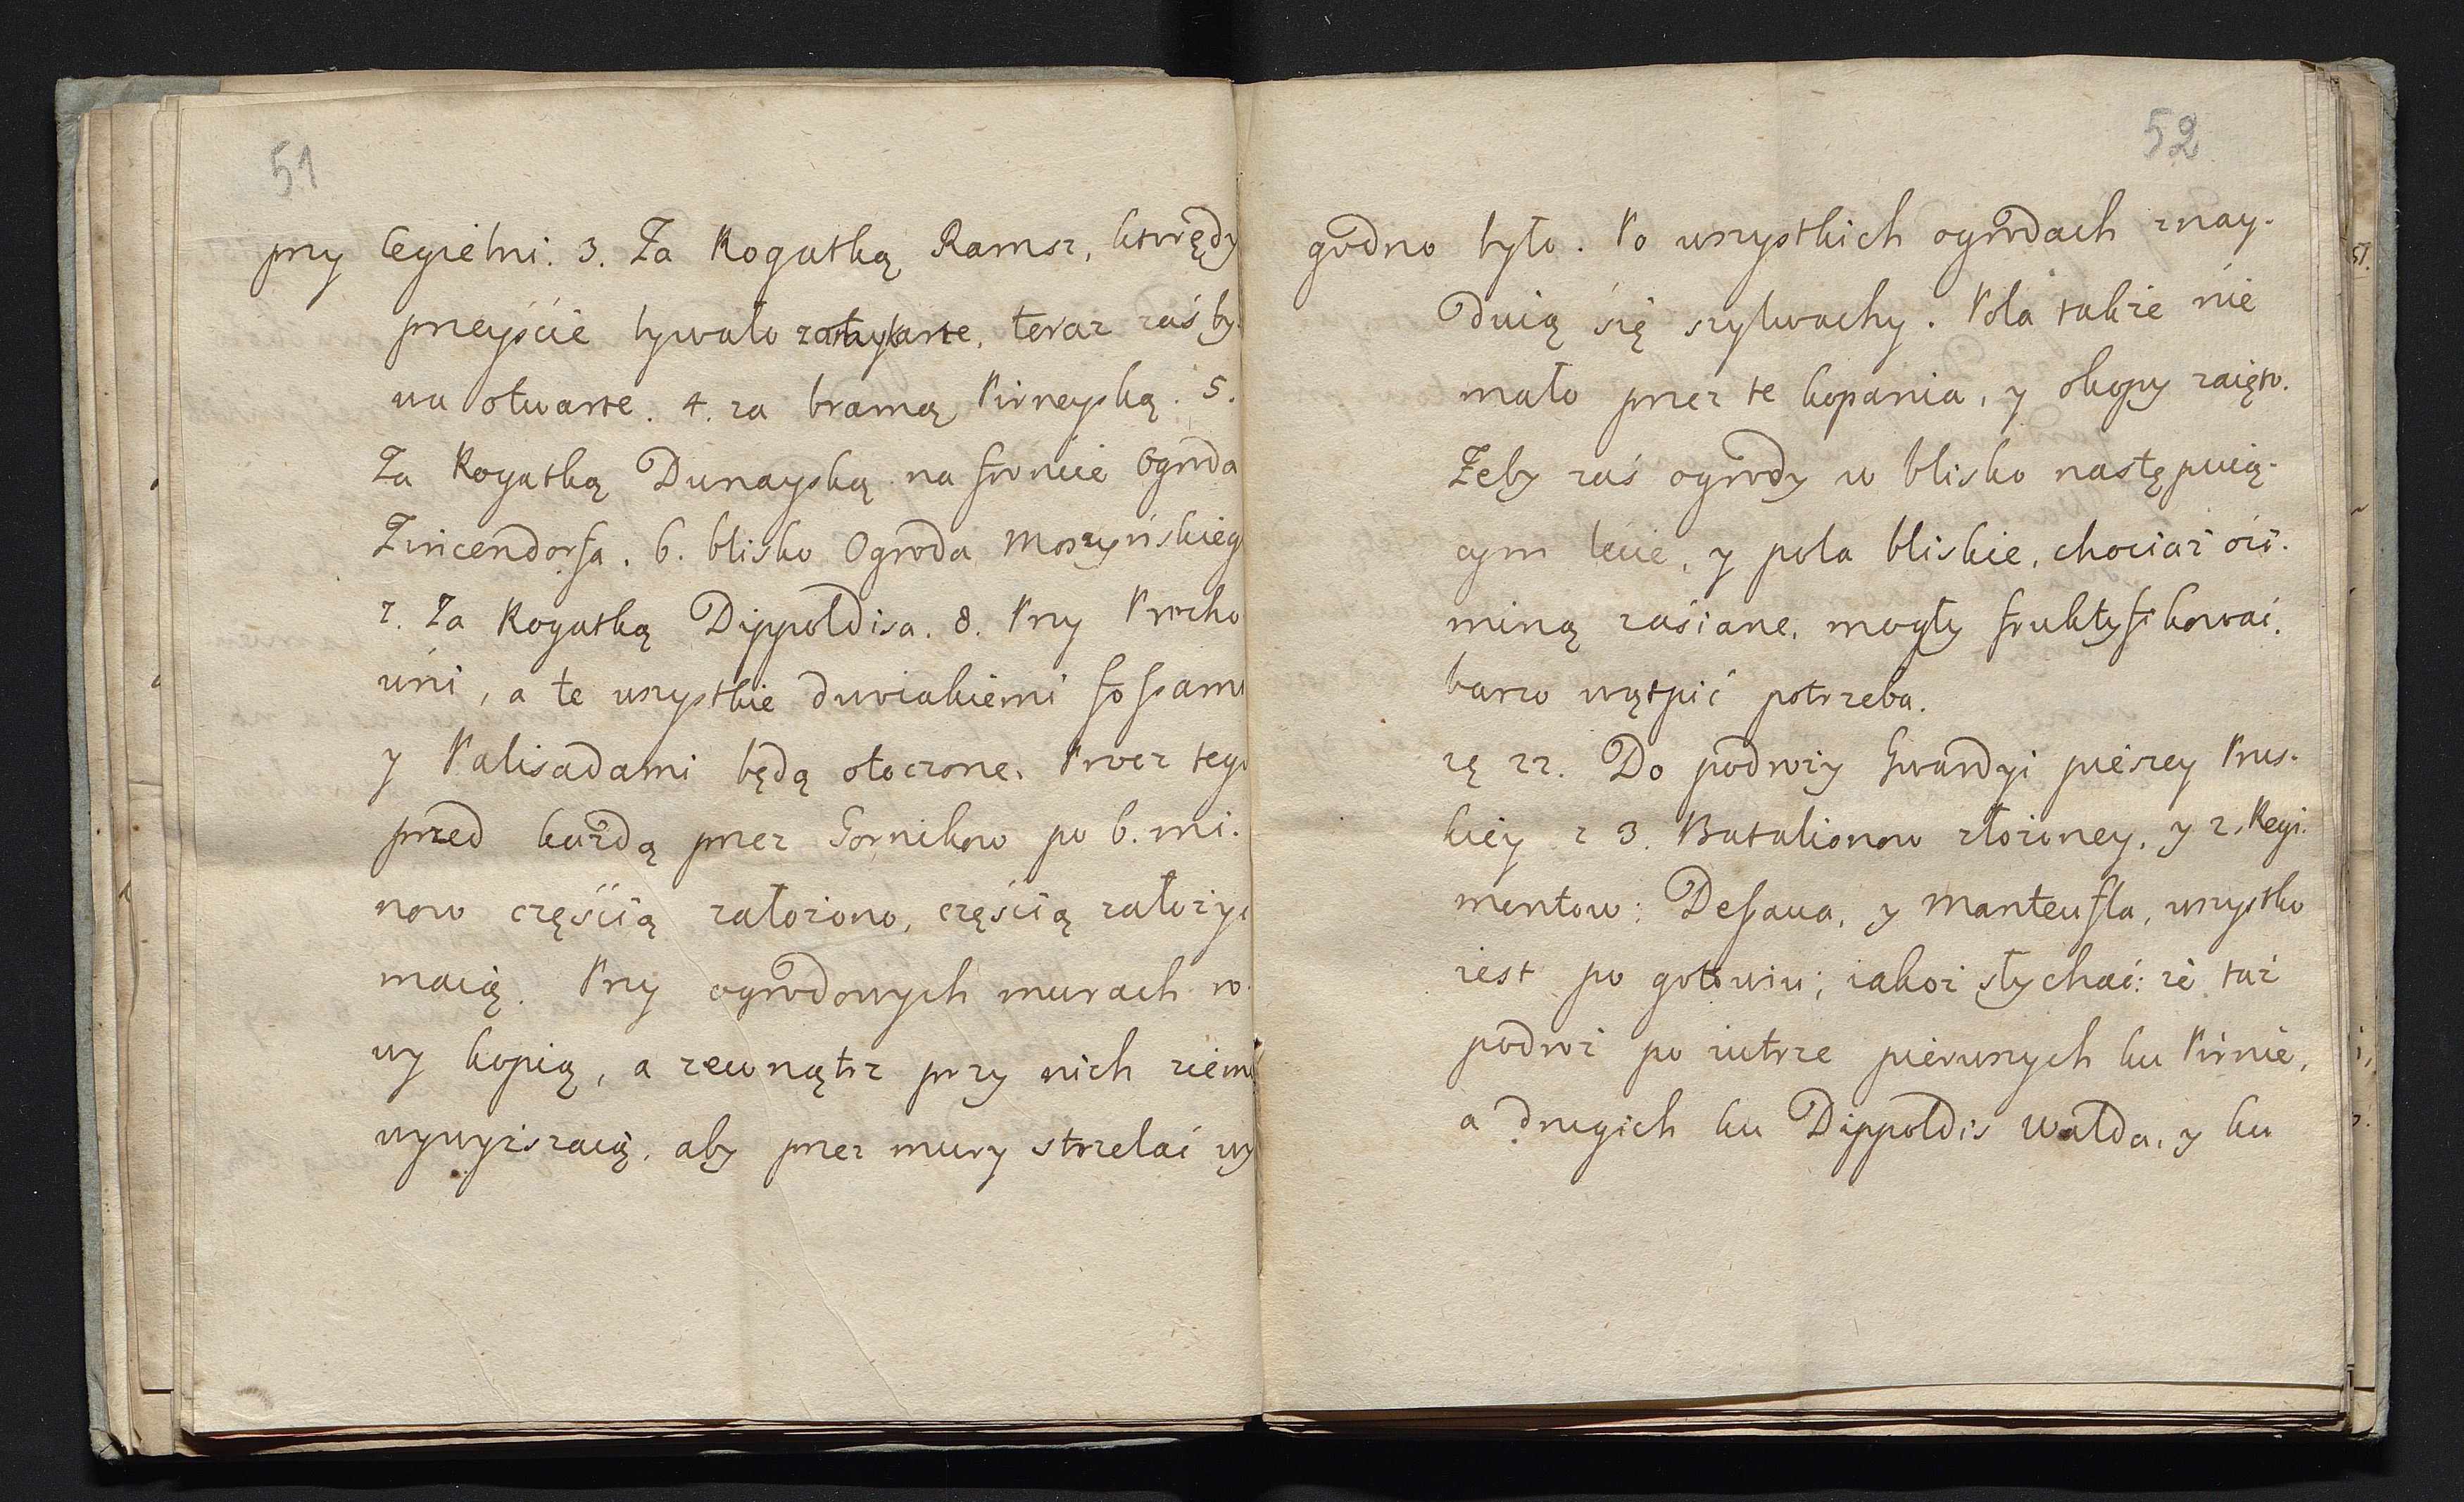 51
przy Cegielni. 3. Za Rogatką Ramsz, ktorędy
przeyście bywało zamykane, teraz zaś by-
wa otwarte. 4. za bramą Pirneyską. 5.
Za Rogatką Dunayską na froncie Ogroda
Zincendorfa. 6. blisko Ogroda Moszyńskieg
7. Za Rogatką Dippoldisa. 8. Przy Procho
wni, a te wszystkie dwoiakiemi fossami
y Palisadami będą otoczone. Procz tego
przed każdą przez Gornikow po 6. mi-
now częścią założono, częścią założyć
maią. Przy ogrodowych murach ro-
wy kopią, a zewnątrz przy nich ziemi
wywyiszaią, aby przez mury strzelać wy
52
godno było. Po wszystkich ogrodach znay-
duią się szylwachy. Pola takze nie
mało przez te kopania, y okopy zaięto.
Zeby zaś ogrody w blisko następuią-
cym lecie, y pola bliskie, chociaż ozi-
miną zasiane, mogły fruktyfikować,
barzo wątpić potrzeba.
zę zz. Do podroży Gwardyi pieszey Prus-
kiey z 3. Batalionow złożoney, y 2. Regi-
mentow: Dessaua, y Manteufla, wszystko
iest po gotowiu; iakoż słychać: że taż
podroż po iutrze pierwszych ku Pirnie,
a drugich ku Dippoldis Walda, y ku